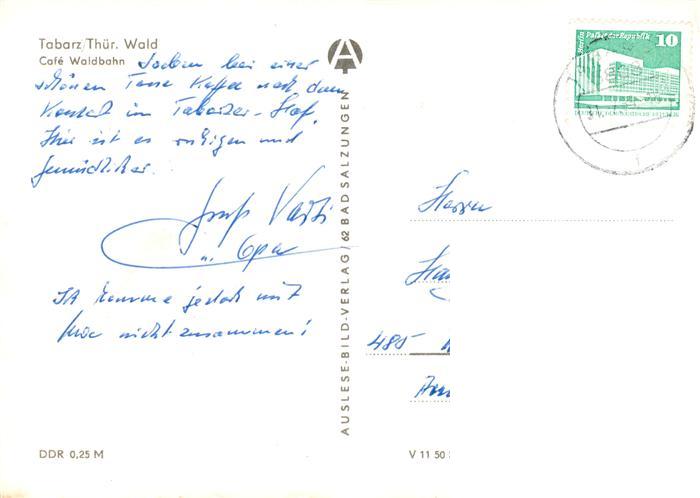 Tabarz/Thür. Wald
Café Waldbahn
Soeben bei einer
schönen Tasse Kaffee nach dem
Konzert im Tabarzer-Hof.
Hier ist es ruhigen und
gemütlicher.
Gruß Vati
u. Opa
komme jedoch mit
nicht zusammen!
AUSLESE-BILD-VERLAG 62 BAD SALZUNGEN
Berlin Palast der Republik 10
DEUTSCHE DEMOKRATISCHE REPUBLIK
Herrn
Ha
485
DDR 0,25 M
V 11 50